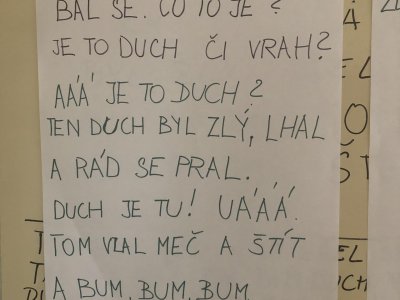 BÁL SE. CO TO JE?
JE TO DUCH ČI VRAH?
AÁÁ JE TO DUCH?
TEN DUCH BYL ZLÝ, LHAL
A RÁD SE PRAL.
DUCH JE TU! UÁÁÁ.
TOM VZAL MEČ A ŠTÍT
A BUM, BUM, BUM